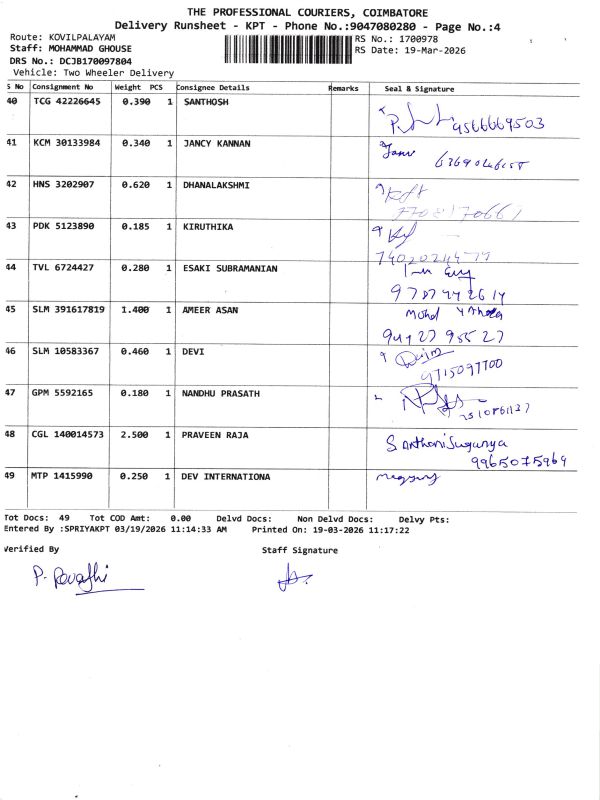 THE PROFESSIONAL COURIERS, COIMBATORE
Delivery Runsheet - KPT - Phone No.:9047080280 - Page No.:4
Route: KOVILPALAYAM RS No.: 1700978
Staff: MOHAMMAD GHOUSE RS Date: 19-Mar-2026
DRS No.: DCJB170097804
Vehicle: Two Wheeler Delivery
S No Consignment No Weight PCS Consignee Details Remarks Seal & Signature
40 TCG 42226645 0.390 1 SANTHOSH
9566669503
41 KCM 30133984 0.340 1 JANCY KANNAN
42 HNS 3202907 0.620 1 DHANALAKSHMI
7708170661
43 PDK 5123890 0.185 1 KIRUTHIKA
44 TVL 6724427 0.280 1 ESAKI SUBRAMANIAN
9787442614
45 SLM 391617819 1.400 1 AMEER ASAN
Mohd
46 SLM 10583367 0.460 1 DEVI
9715097700
47 GPM 5592165 0.180 1 NANDHU PRASATH
48 CGL 140014573 2.500 1 PRAVEEN RAJA
S Anthoni Suganya
9965075969
49 MTP 1415990 0.250 1 DEV INTERNATIONA
Tot Docs: 49 Tot COD Amt: 0.00 Delvd Docs: Non Delvd Docs: Delvy Pts:
Entered By :SPRIYAKPT 03/19/2026 11:14:33 AM Printed On: 19-03-2026 11:17:22
Verified By Staff Signature
P. Revathi